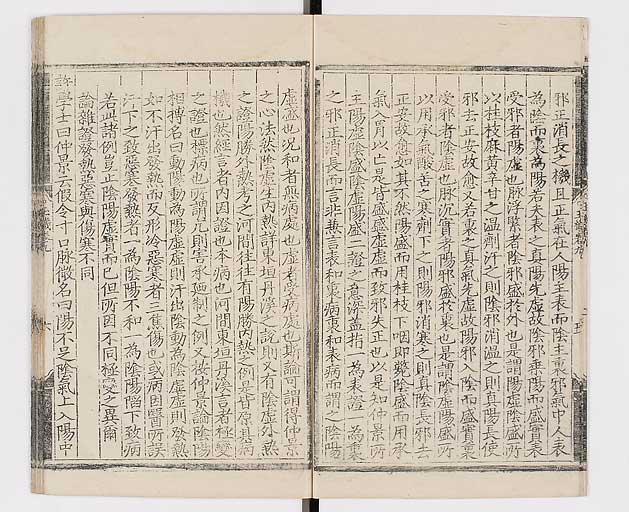 邪正消長之機且正氣在人陽主表而陰主裏邪氣中人表
為陰而裏為陽若夫表之真陽先虛故陰邪乘陽而盛實表
受邪者陽虛也脉浮緊者陰邪盛於外也是謂陽虛陰盛所
以桂枝麻黃辛甘之溫劑汗之則陰邪消溫之則真陽長使
邪去正安故愈又若裏之真氣先虛故陽邪入陰而盛實裏
受邪者陰虛也脉沉實者陽邪盛於裏也是謂陰虛陽盛所
以用承氣酸苦之寒劑下之則陽邪消寒之則真陰長邪去
正安故愈如其不然陽盛而用桂枝下咽即斃陰盛而用承
氣入胃以亡是皆盛盛虛虛而致邪失正也以是知仲景所
主陽虛陰盛陰虛陽盛二證之意深盖指一為表證一為裏
之邪正消長而言非兼言表和裏病裏和表病而謂之陰陽
虛盛也况和者無病處也虛者受病處也斯論可謂得仲景
之心法然陰虛生內熱詳東垣丹溪之說則又有陰虛外熱
之證陽勝外熱考之河間往往有陽勝內熱之例是皆原其病
機也然經言者內因證也本病也河間東垣丹溪言者極變
之證也標病也所謂亢則害承廼制之例又按仲景論陰陽
相搏名曰動陽動為陽虛虛則汗出陰動為陰虛虛則發熱
如不汗出發熱而反形冷惡寒者三焦傷也或病因醫所誤
汗下之致惡寒發熱者一為陰陽不和一為陰陽陷下致病
若此諸例豈止陰陽虛實而已但所因不同極變之異爾
論雜證發熱惡寒與傷寒不同
許學士曰仲景云假令寸口脉微名曰陽不足陰氣上入陽中